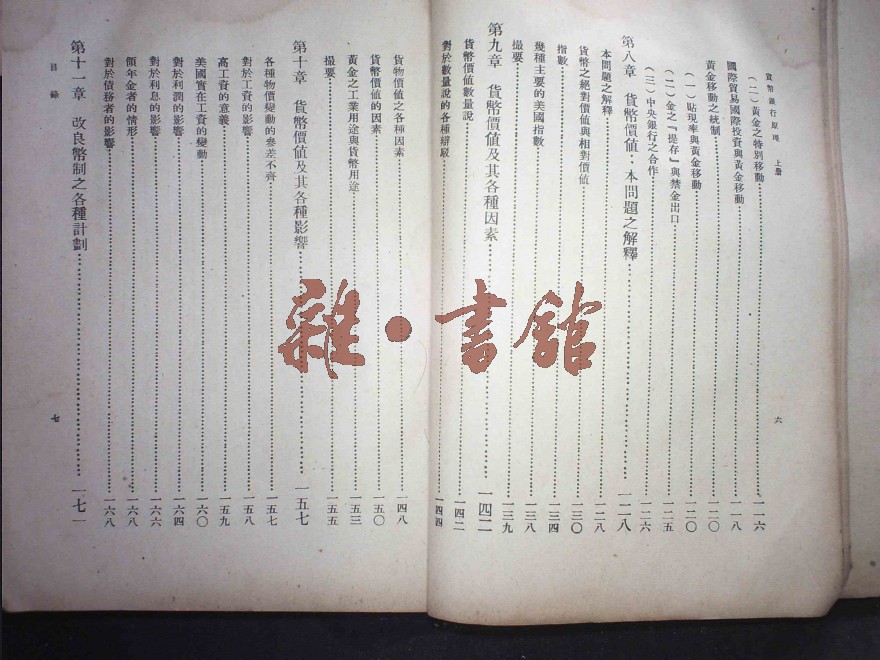 貨幣銀行原理 上册
(二)黃金之特別移動 一一六
國際貿易國際投資與黃金移動 一一八
黃金移動之統制 一二〇
(一)貼現率與黃金移動 一二〇
(二)金之『提存』與禁金出口 一二五
(三)中央銀行之合作 一二六
第八章 貨幣價值:本問題之解釋 一二八
本問題之解釋 一二八
貨幣之絕對價值與相對價值 一三〇
指數 一三四
幾種主要的美國指數 一三八
撮要 一三九
第九章 貨幣價值及其各種因素 一四二
貨幣價值數量說 一四二
對於數量說的各種辯駁 一四四
六
貨物價值之各種因素 一四八
貨幣價值的因素 一五〇
黃金之工業用途與貨幣用途 一五三
撮要 一五五
第十章 貨幣價值及其各種影響 一五七
各種物價變動的參差不齊 一五七
對於工資的影響 一五八
高工資的意義 一五九
美國實在工資的變動 一六〇
對於利潤的影響 一六四
對於利息的影響 一六六
領年金者的情形 一六八
對於債務者的影響 一六八
第十一章 改良幣制之各種計劃 一七一
目錄
七
雜·書館